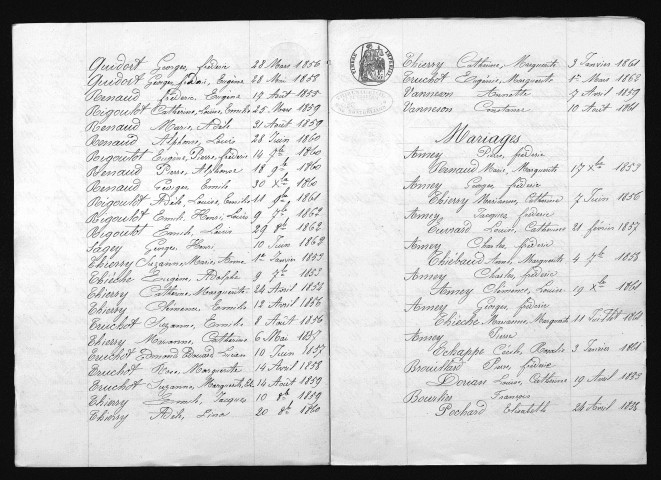 Quidort Georges, frédéric 28 Mars 1856
Quidort Georges, frédéric, Eugène 28 Mai 1858
Renaud frédéric, Eugène 17 Août 1855
Rigoulot Catherine, Louise, Emilie 25 Mars 1859
Renaud Marie, Adèle 31 Août 1859
Renaud Alphonse, Louis 28 Juin 1860
Rigoulot Eugène, Pierre, frédéric 14 7bre 1860
Renaud Pierre, Alphonse 18 9bre 1860
Renaud Georges, Emile 30 Xbre 1860
Rigoulot Adèle, Louise, Emilie 11 9bre 1861
Rigoulot Emile, Henri, Louis 9 7bre 1862
Rigoulot Emile, Louis 29 8bre 1862
Sagey Georges, Henri 10 Juin 1862
Thierry Suzanne, Marie, Anne 1er Janvier 1853
Thièche Eugène, Adolphe 9 7bre 1853
Thierry Catherine, Marguerite 24 Avril 1854
Thierry Clémence, Emilie 12 Avril 1856
Truchot Suzanne, Emilie 8 Août 1856
Thierry Marianne, Catherine 6 Mai 1857
Truchot Edmond, Edouard, Lucien 10 Juin 1857
Truchot Rose, Marguerite 14 Avril 1858
Truchot Suzanne, Marguerite 14 Août 1859
Thierry Emile, Jacques 10 8bre 1859
Thierry Adèle, Lina 20 8bre 1860
Thierry Catherine, Marguerite 3 Janvier 1861
Truchot Eugénie, Marguerite 1er Mars 1862
Vanneson Annette 7 Avril 1859
Vanneson Constance 10 Août 1861
Mariages
Anney Pierre, frédéric
Renaud Marie, Marguerite 17 Xbre 1853
Anney Georges, frédéric
Thierry Marianne, Catherine 7 Juin 1856
Anney Jacques, frédéric
Euvrard Louise, Catherine 21 février 1857
Anney Charles, frédéric
Thiébaud Marguerite 4 7bre 1858
Anney Charles, frédéric
Anney Clémence, Louise 19 Xbre 1861
Anney Georges, frédéric
Thièche Marianne, Marguerite 11 Juillet 1861
Anney Pierre
Echappe Cécile, Rosalie 3 Janvier 1861
Brouillard Pierre, frédéric
Dorian Louise, Catherine 19 Avril 1853
Bourlier François
Pochard Elisabeth 24 Avril